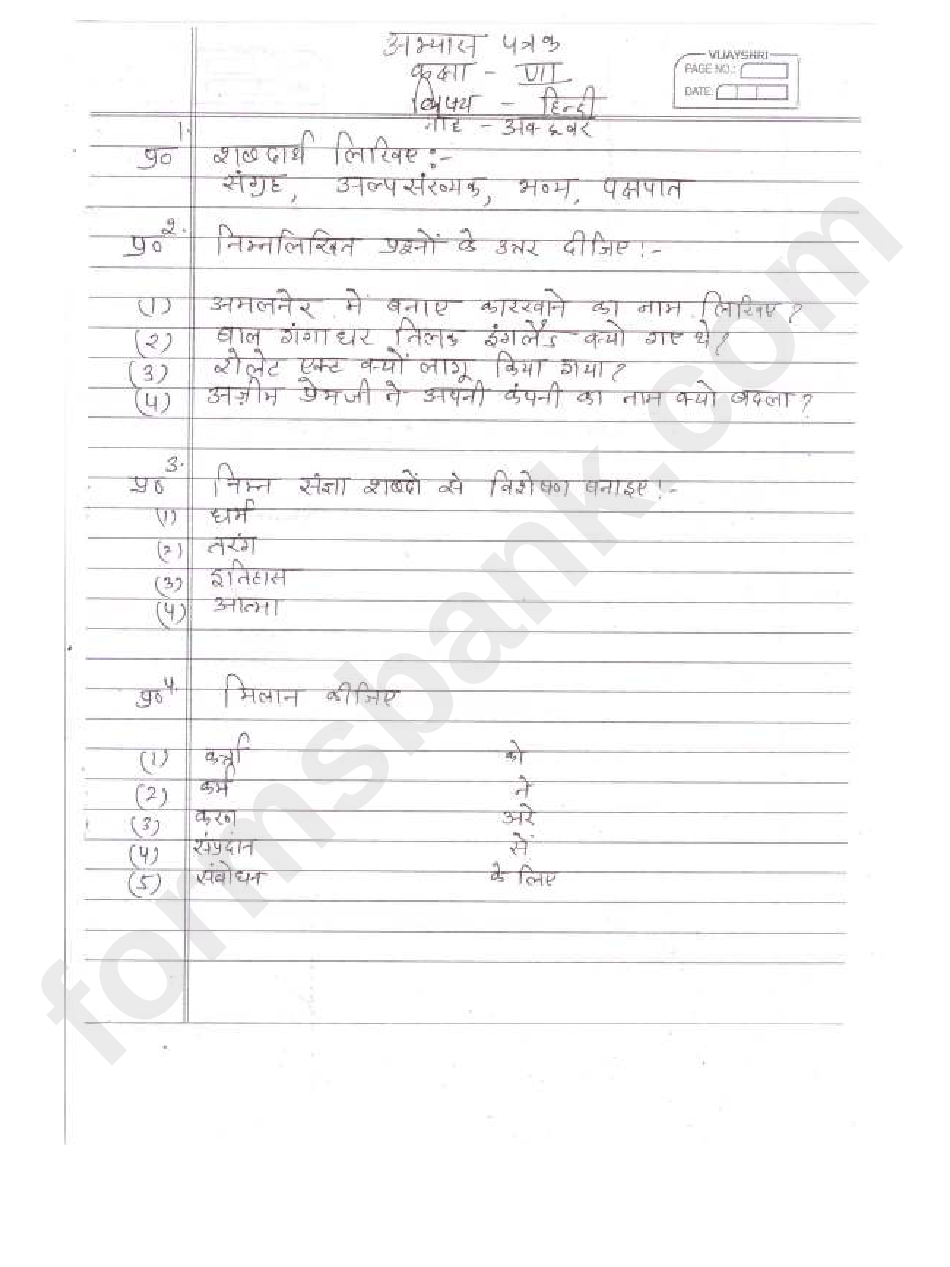 अभ्यास पत्रक
कक्षा - VII
विषय - हिन्दी
माह - अक्टूबर
VIJAYSHRI
PAGE NO.:
DATE:
प्र० 1. शब्दार्थ लिखिए :-
संग्रह, अल्पसंख्यक, भव्य, पक्षपात
प्र० 2. निम्नलिखित प्रश्नों के उत्तर दीजिए :-
(1) अमलनेर में बनाए कारखाने का नाम लिखिए ?
(2) बाल गंगाधर तिलक इंगलैंड क्यो गए थे ?
(3) रोलेट एक्ट क्यों लागू किया गया ?
(4) अज़ीम प्रेमजी ने अपनी कंपनी का नाम क्यो बदला ?
प्र० 3. निम्न संज्ञा शब्दों से विशेषण बनाइए :-
(1) धर्म
(2) तरंग
(3) इतिहास
(4) आत्मा
प्र० 4. मिलान कीजिए
(1) कर्त्ता को
(2) कर्म ने
(3) करण अरे
(4) संप्रदान सें
(5) संबोधन के लिए
formsbank.com